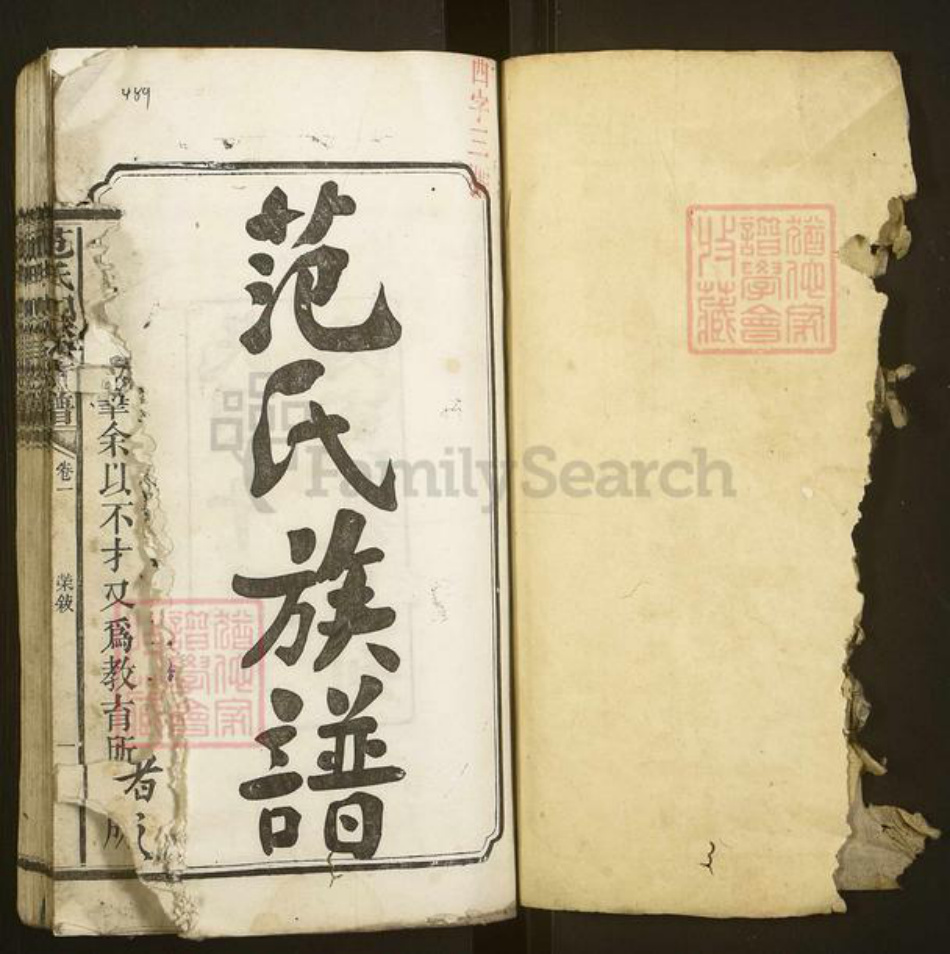 猶他家
譜學會
收藏
四字三
489
范氏族譜
FamilySearch
余以不才又爲教育所
者
猶他家
譜學會
范氏
譜
卷一
一